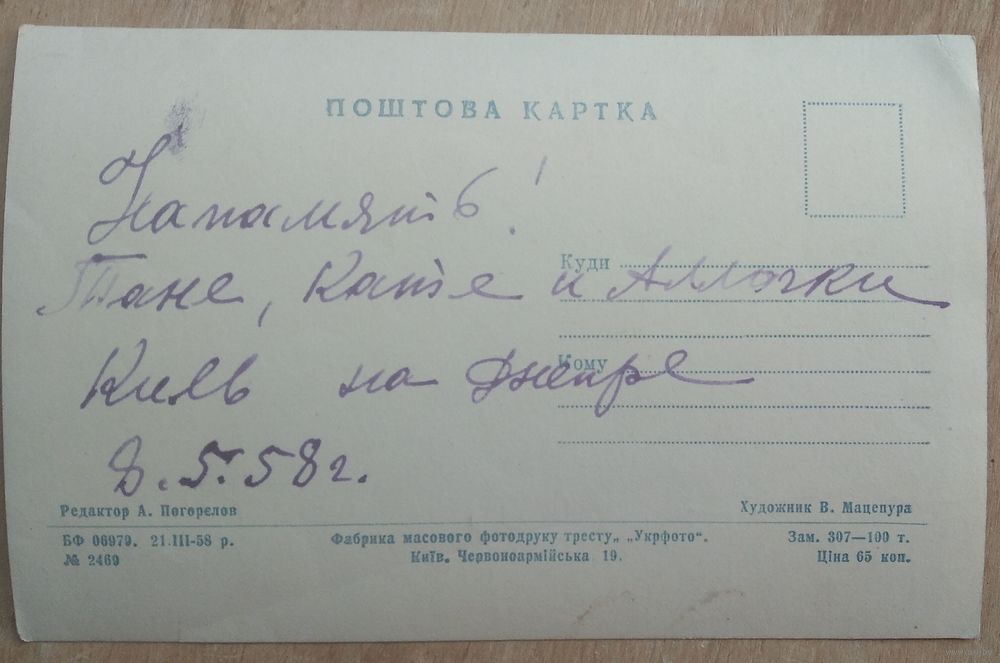 ПОШТОВА КАРТКА
Напамять!
Куди
Тане, Кате и Аллочки
Кому
Киев на Днепре
8.5.58г.
Редактор А. Погорєлов
Художник В. Мацепура
БФ 06979. 21.III-58 р.
Фабрика масового фотодруку тресту „Укрфото“.
Зам. 307—100 т.
№ 2469
Київ. Червоноармійська 19.
Ціна 65 коп.